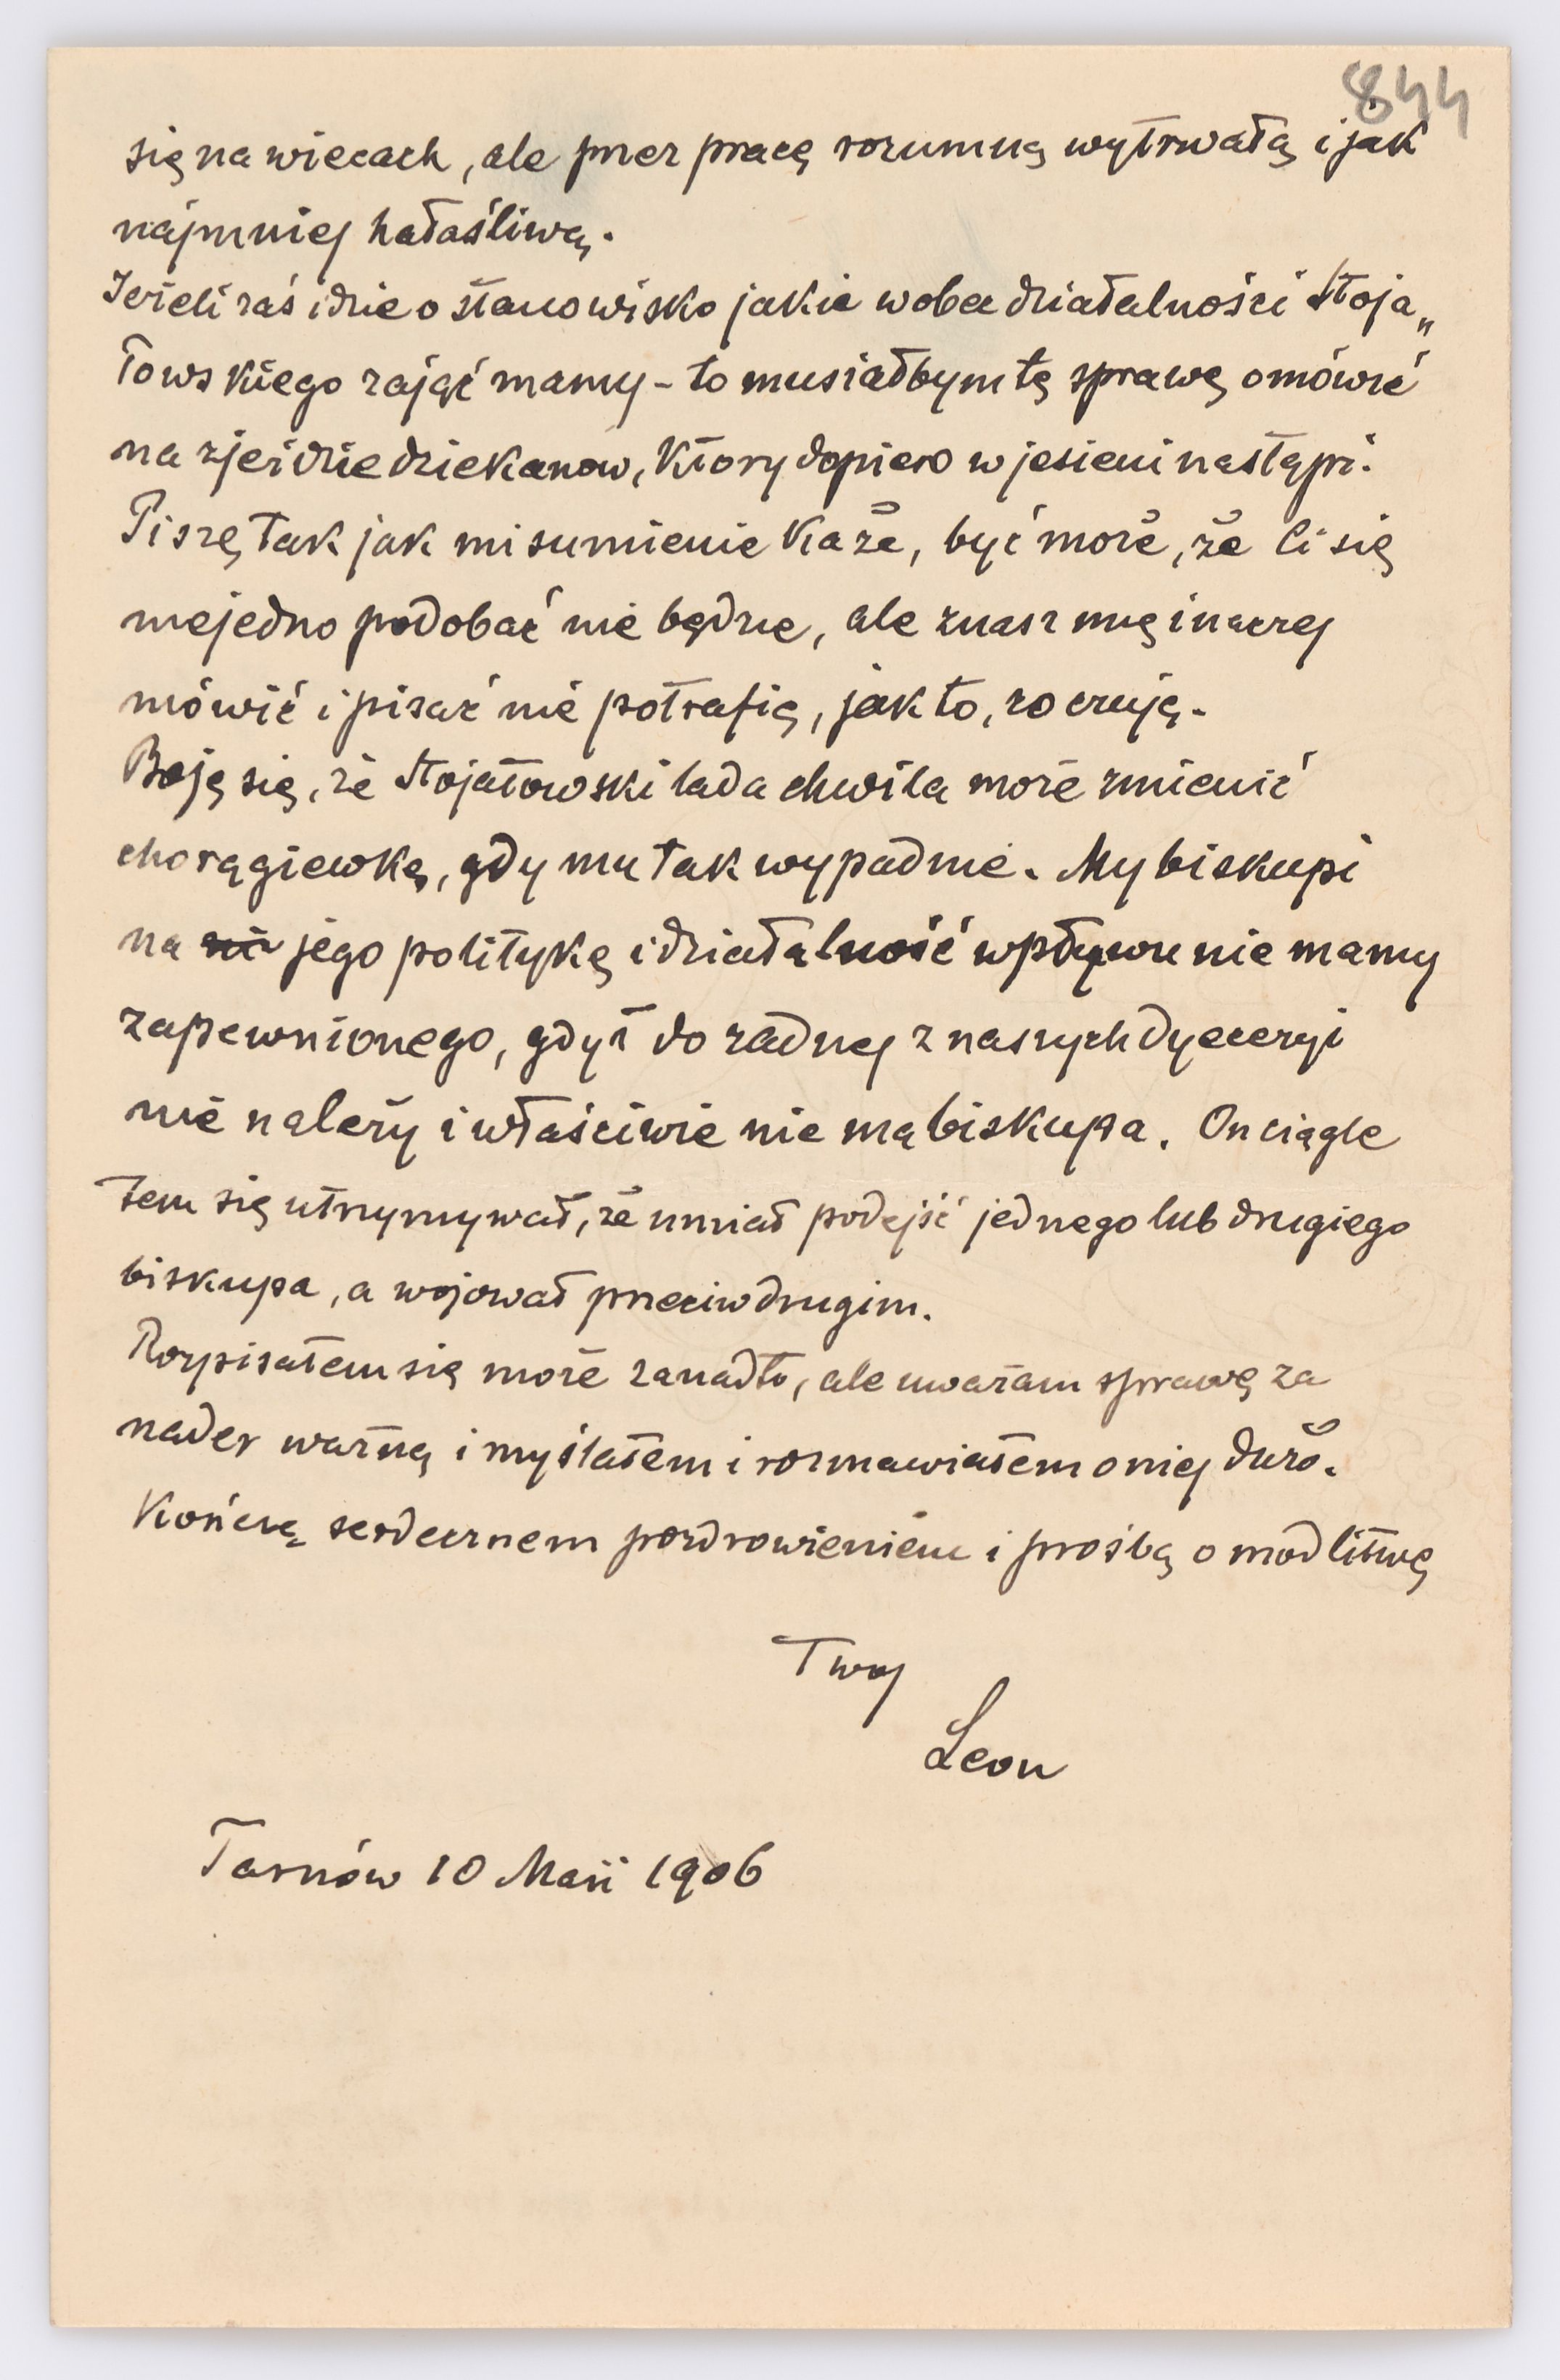 844
się na wiecach, ale przez pracę rozumną wytrwałą i jak
najmniej hałaśliwą.
Jeżeli zaś idzie o stanowisko jakie wobec działalności Stoja„
łowskiego zająć mamy - to musiałbym tę sprawę omówić
na zjeździe dziekanow, ktory dopiero w jesieni nastąpi.
Piszę tak jak mi sumienie każe, być może, że Ci się
niejedno podobać nie będzie, ale znasz mię inaczej
mówić i pisać nie potrafię, jak to, co czuję.
Boję się, że Stojałowski lada chwila może zmienić
chorągiewkę, gdy mu tak wypadnie. My biskupi
na jego politykę i działalność wpływu nie mamy
zapewnionego, gdyż do żadnej z naszych dyecezyi
nie należy i właściwie nie ma biskupa. On ciągle
tem się utrzymywał, że umiał podejść jednego lub drugiego
biskupa, a wojował przeciw drugim.
Rozpisałem się może zanadto, ale uważam sprawę za
nader ważną i myślałem i rozmawiałem o niej dużo.
Kończę serdecznem pozdrowieniem i prośbą o modlitwę
Twoj
Leon
Tarnów 10 Maii 1906